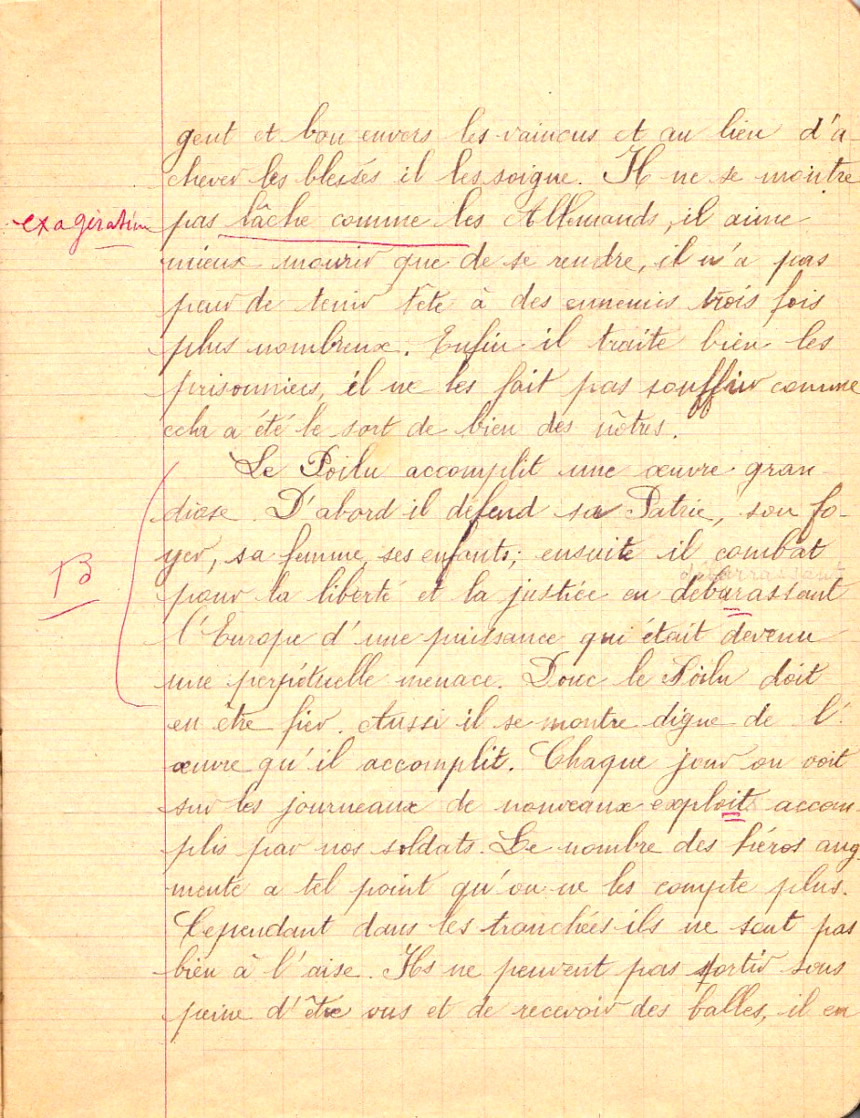 gent et bon envers les vaincus et au lieu d'a-
chever les blessés il les soigne. Il ne se montre
exagération
pas lâche comme les Allemands, il aime
mieux mourir que de se rendre, il n'a pas
peur de tenir tête à des ennemis trois fois
plus nombreux. Enfin il traite bien les
prisonniers, il ne les fait pas souffrir comme
cela a été le sort de bien des nôtres.
Le Poilu accomplit une œuvre gran-
diose. D'abord il défend sa Patrie, son fo-
yer, sa femme, ses enfants; ensuite il combat
B
débarrassant
pour la liberté et la justice en débarassant
l'Europe d'une puissance qui était devenu
une perpétuelle menace. Donc le Poilu doit
en être fier. Aussi il se montre digne de l'
œuvre qu'il accomplit. Chaque jour on voit
sur les journeaux de nouveaux exploits accom-
plis par nos soldats. Le nombre des héros aug-
mente a tel point qu'on ne les compte plus.
Cependant dans les tranchées ils ne sont pas
bien à l'aise. Ils ne peuvent pas sortir sous
peine d'être vus et de recevoir des balles, il en